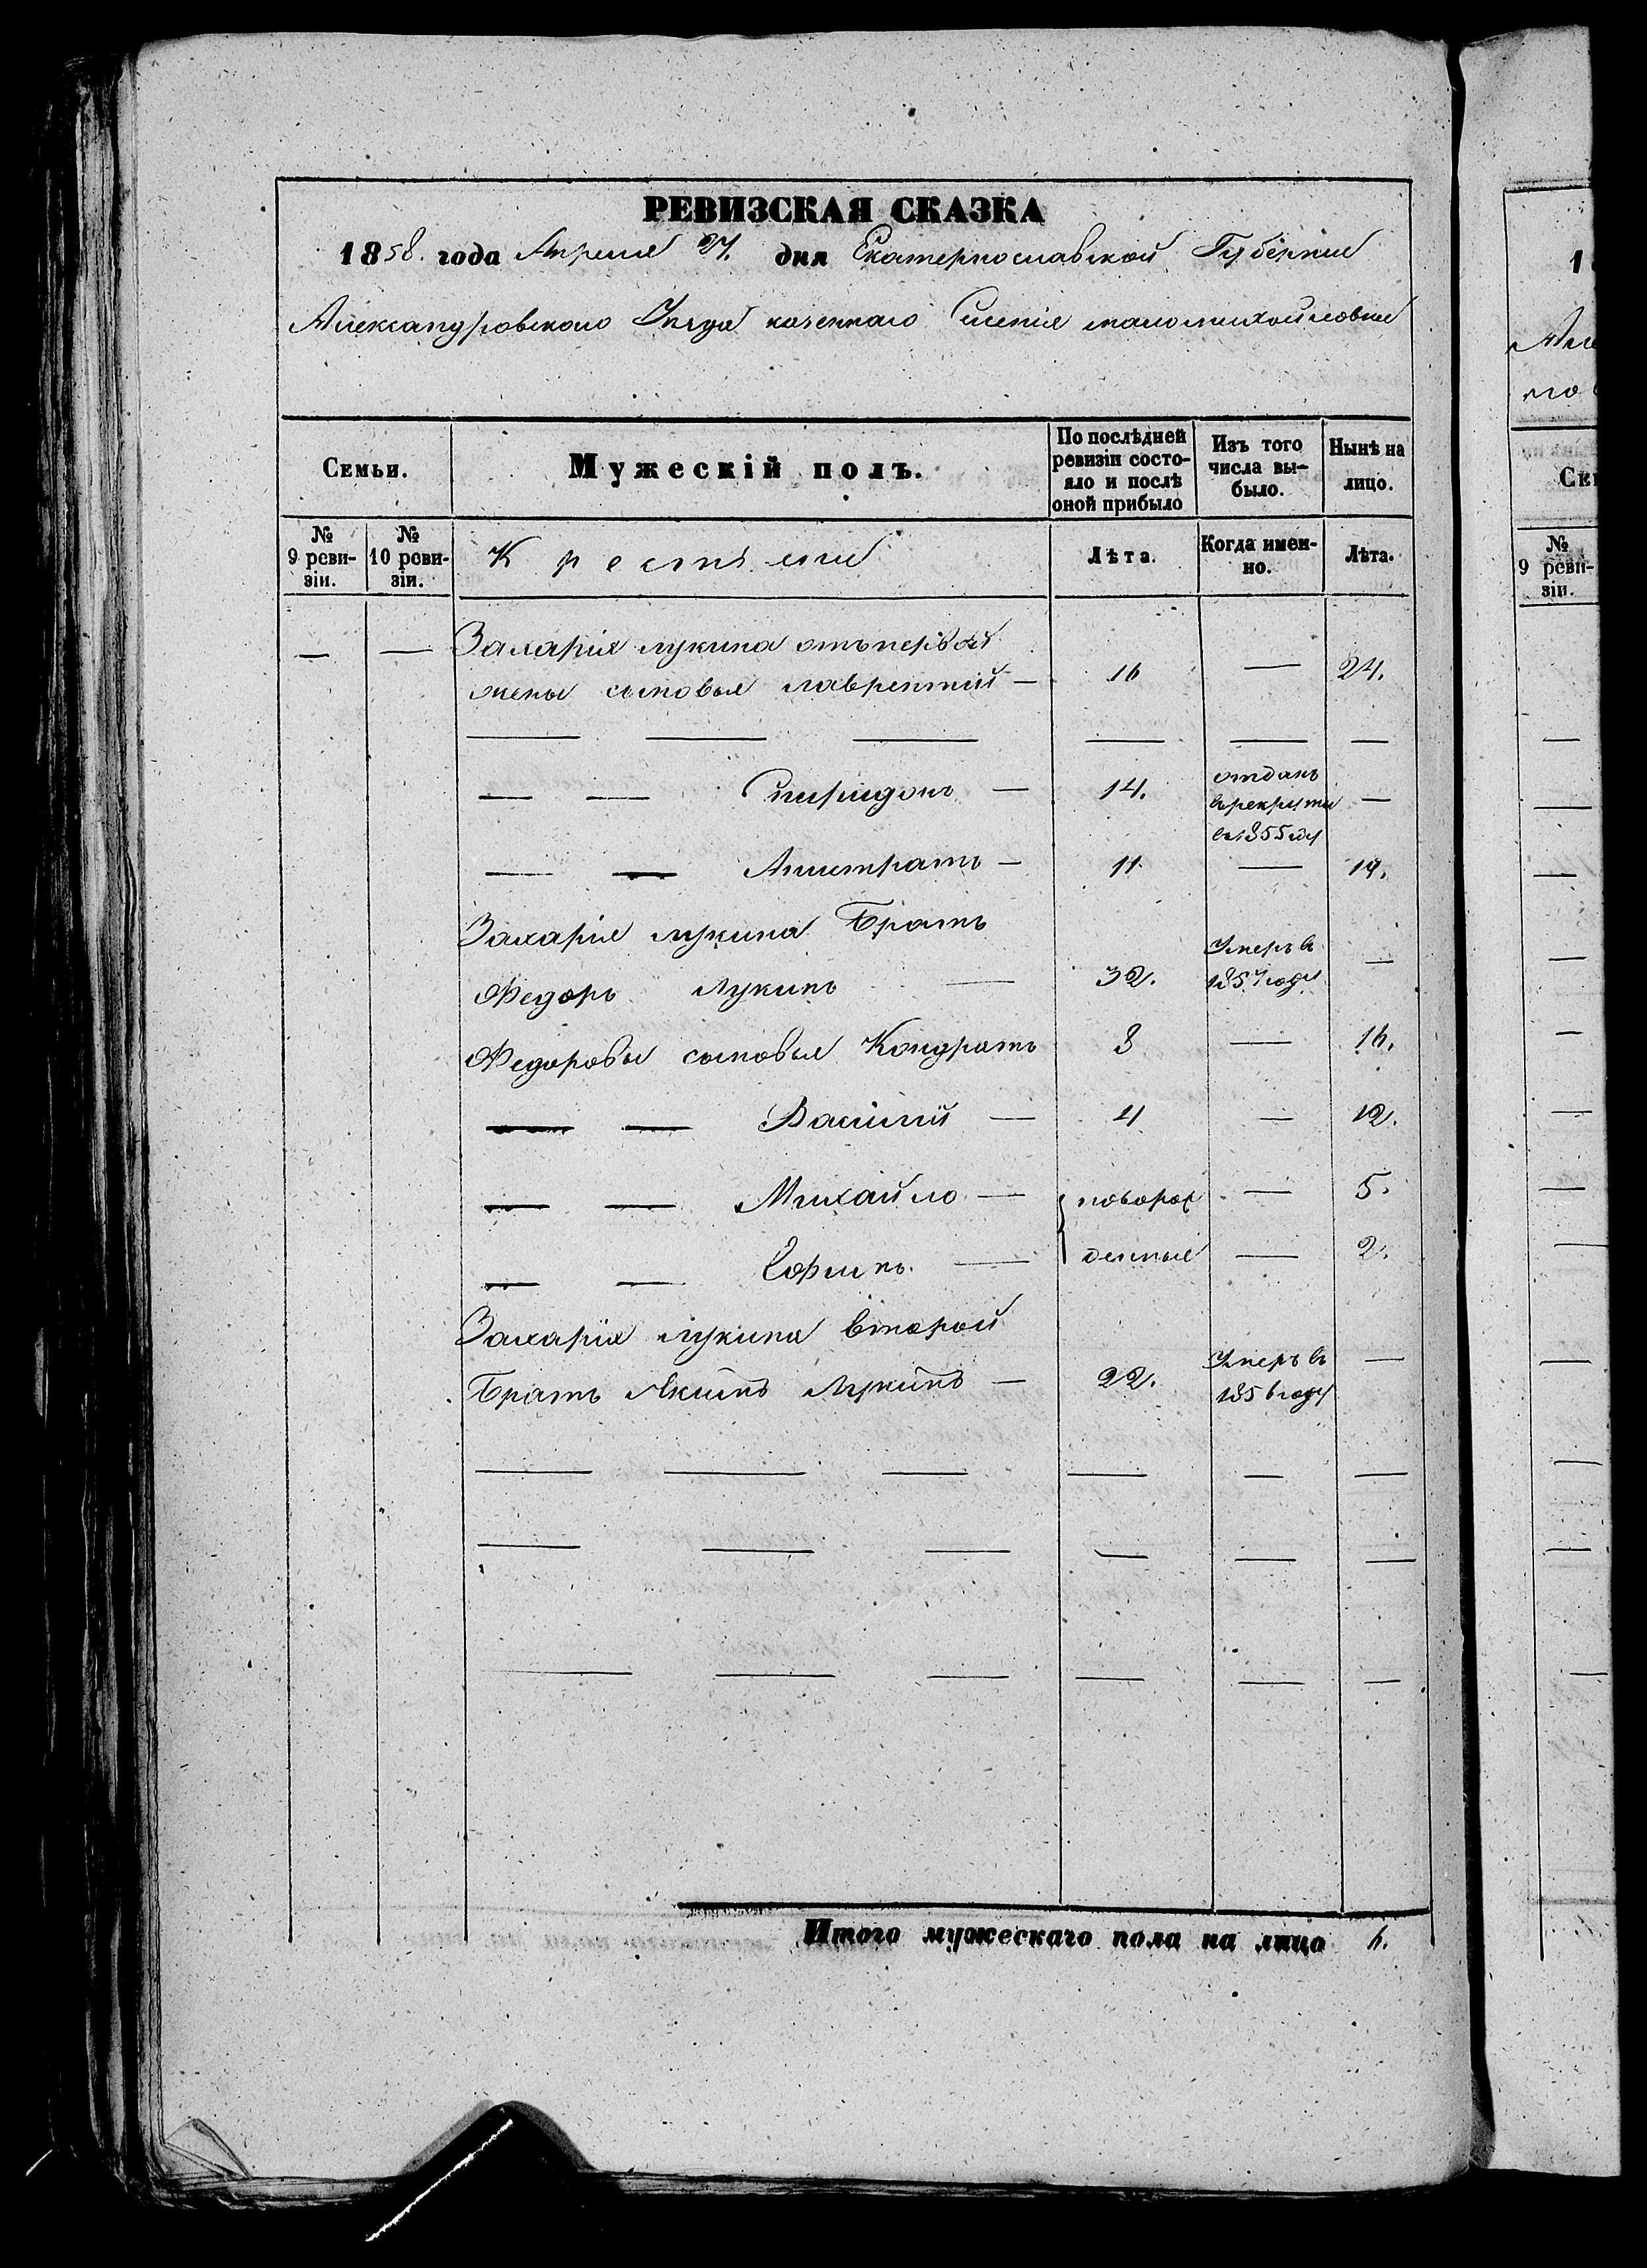 РЕВИЗСКАЯ СКАЗКА
1858. года Апреля 27. дня Екатеринославской Губернии
Александровского Уезда казенного Селения маломихайловки
Семьи.
Мужескій полъ.
По послѣдней ревизіи состо-
яло и послѣ
оной прибыло
Изъ того
числа вы-
было.
Нынѣ на
лицо.
№
9 реви-
зіи.
№
10 реви-
зіи.
Крестьяне
Лѣта.
Когда имен-
но.
Лѣта.
— — Захарія лукина отъ первой
жены сыновья лаврентий — 16 — 24.
— — — — — —
— — Спиридонъ — 14. отданъ
въ рекруты —
въ 1855 году
— — Анистратъ — 11 — 19.
Захарія лукина Братъ
Федоръ Лукинъ — 32. Умеръ в
1857 году —
Федоровы сыновья Кондратъ 8 — 16.
— — Василій — 4 — 12.
— — Михайло — новорож — 5.
— — Ефимъ. — денные — 2.
Захарія лукина второй
Братъ Якимъ Лукинъ — 22. Умеръ въ —
1856 году
— — — — — —
— — — — — —
— — — — — —
Итого мужескаго пола на лицо 6.
1
Але
лов
Сем
№
9 реви-
зіи.